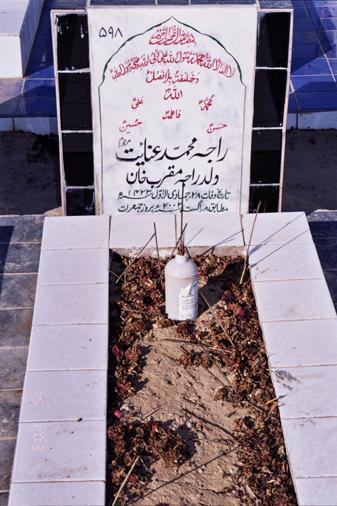 ۵۹۸
بسم اللہ الرحمن الرحیم
لا الہ الا اللہ محمد رسول اللہ علی ولی اللہ
اللہ
محمدؐ
علیؑ
فاطمہؑ
حسنؑ
حسینؑ
راجہ محمد عنایت مرحوم
ولد راجہ مقرب خان
تاریخ وفات ۲۸ جمادی الاول ۱۴۲۳ھ
بمطابق ۸ اگست ۲۰۰۲ء بروز جمعرات